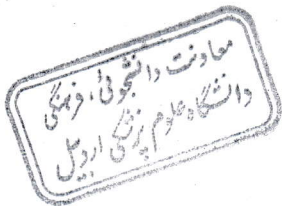 معاونت دانشجوئی، فرهنگی
دانشگاه علوم پزشکی اردبیل